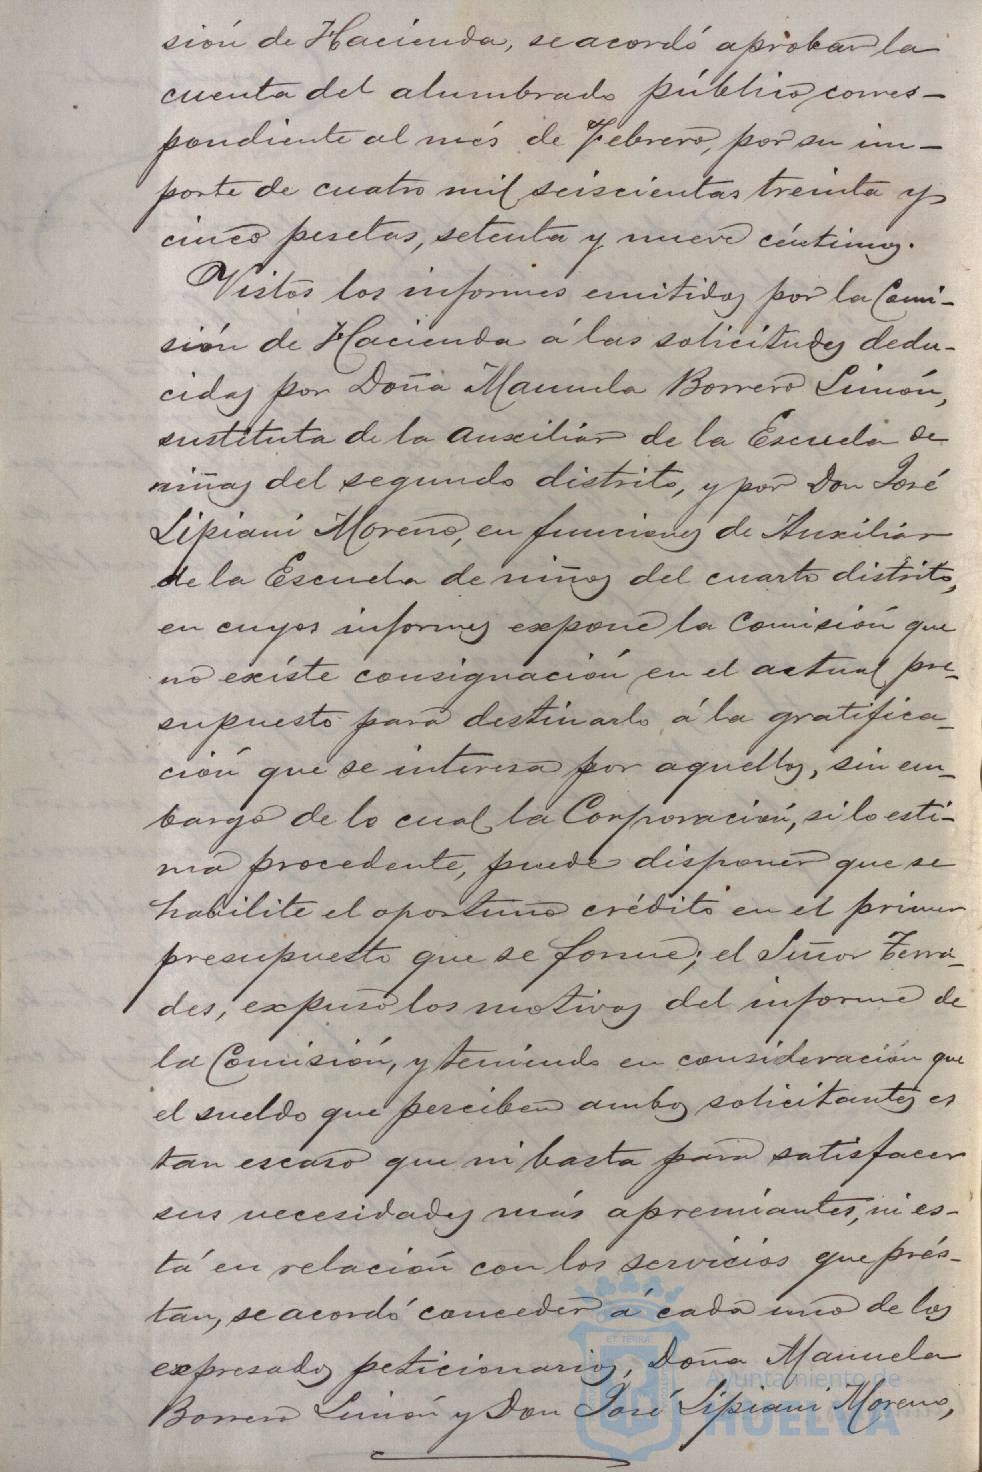 sión de Hacienda, se acordó aprobar la
cuenta del alumbrado público, corres-
pondiente al més de Febrero, por su im-
porte de cuatro mil seiscientas treinta y
cinco pesetas, setenta y nueve céntimos.
Vistos los informes emitidos por la Comi-
sión de Hacienda á las solicitudes dedu-
cidas por Doña Manuela Borrero Limón,
sustituta de la auxiliar de la Escuela de
niñas del segundo distrito, y por Don José
Lipiani Moreno, en funciones de Auxiliar
de la Escuela de niños del cuarto distrito,
en cuyos informes expone la Comisión que
no existe consignación en el actual pre-
supuesto para destinarlo á la gratifica-
ción que se interesa por aquellos, sin em-
bargo de lo cual la Corporación, si lo esti-
ma procedente, puede disponer que se
habilite el oportuno crédito en el primer
presupuesto que se forme; el Señor Terra-
des, expuso los motivos del informe de
la Comisión, y teniendo en consideración que
el sueldo que perciben ambos solicitantes es
tan escaso que ni basta para satisfacer
sus necesidades más apremiantes, ni es-
tá en relación con los servicios que prés-
tan, se acordó conceder á cada uno de los
expresados peticionarios, Doña Manuela
Borrero Limón y Don José Lipiani Moreno,
Ayuntamiento de
HUELVA